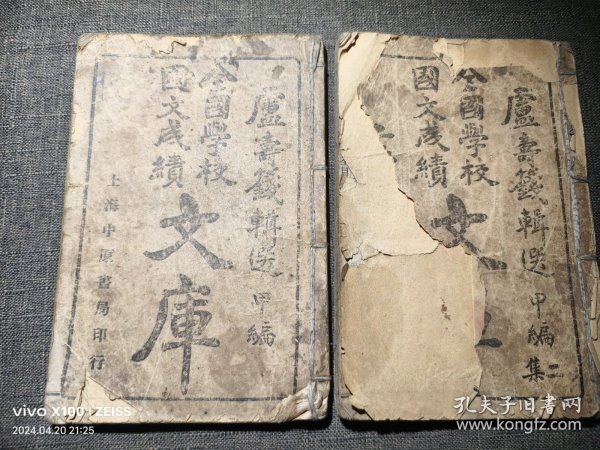 盧壽籛輯選 甲編
全國學校
國文成績
文庫
上海中原書局印行
盧壽籛輯選 甲編
二集
全國學校
國文成績
文
vivo X100 | ZEISS
2024.04.20 21:25
孔夫子旧书网
www.kongfz.com